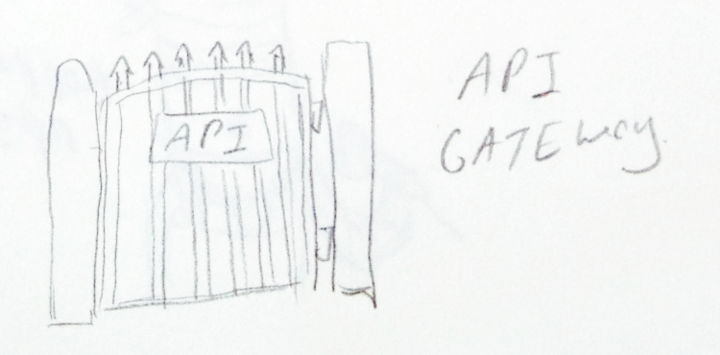 API
API
GATEway